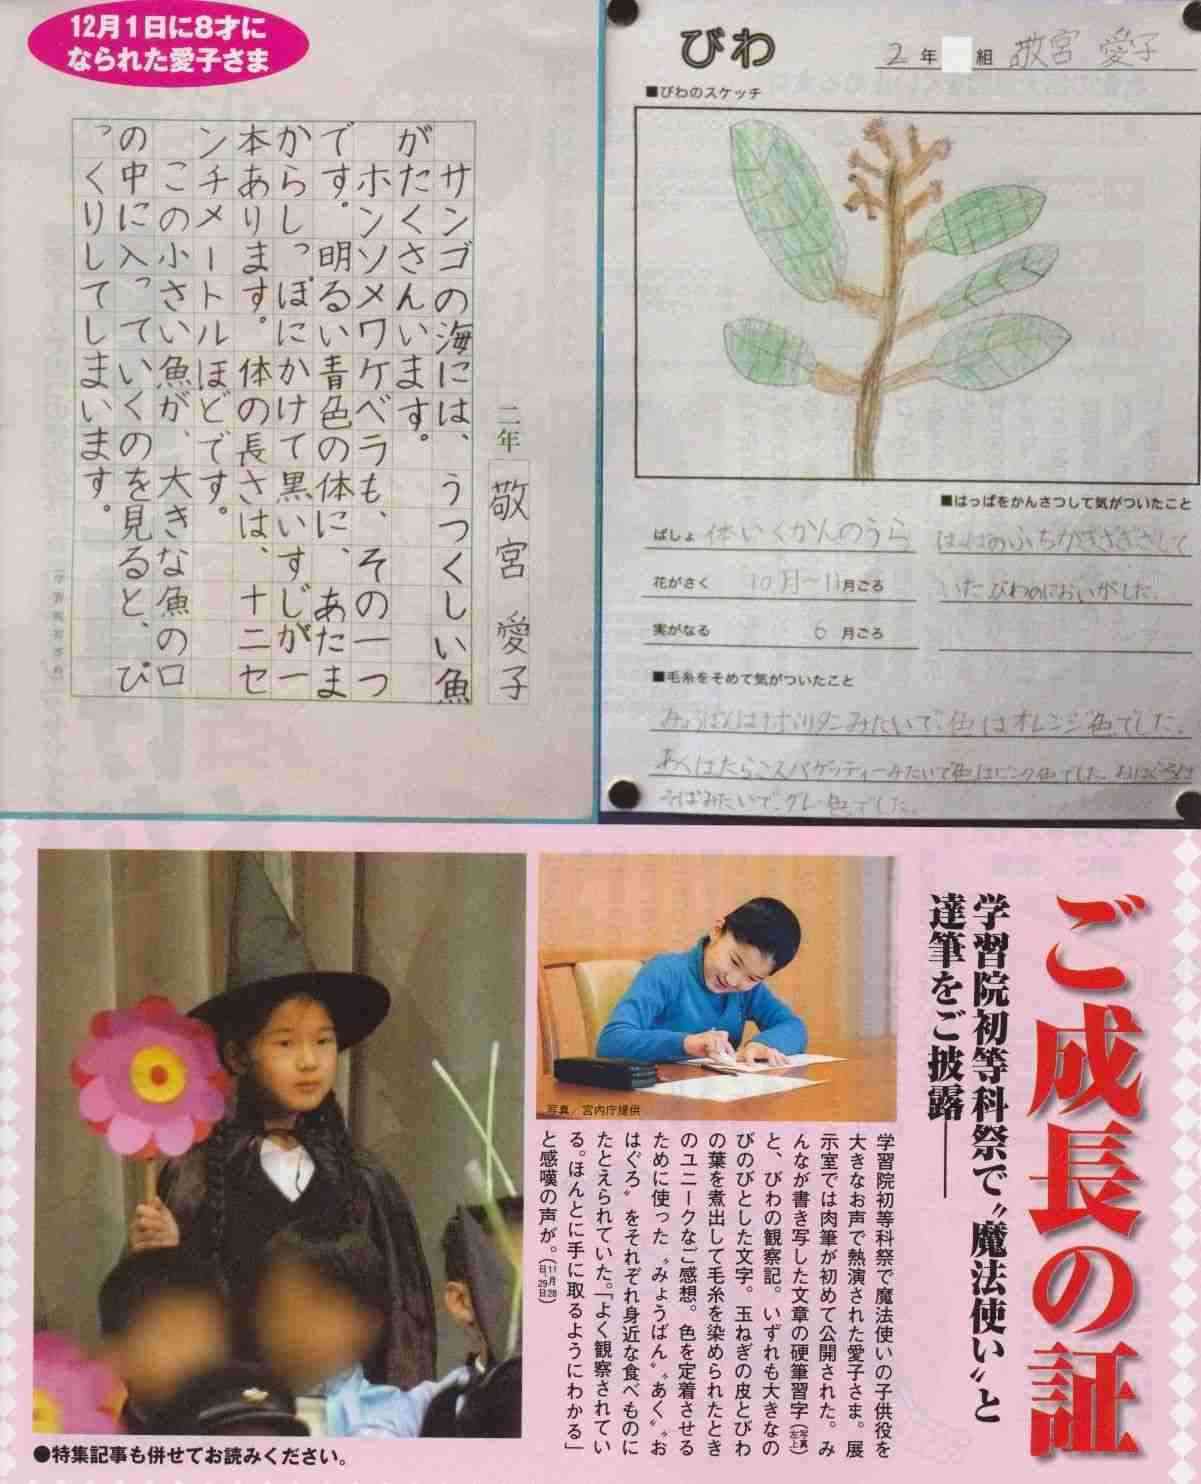 12月1日に8才に
なられた愛子さま
二年 敬宮 愛子
サンゴの海には、うつくしい魚
がたくさんいます。
ホンソメワケベラも、その一つ
です。明るい青色の体に、あたま
からしっぽにかけて黒いすじが一
本あります。体の長さは、十二セ
ンチメートルほどです。
この小さい魚が、大きな魚の口
の中に入っていくのを見ると、び
っくりしてしまいます。
びわ
2年 組 敬宮 愛子
■びわのスケッチ
■はっぱをかんさつして気がついたこと
ばしょ 体いくかんのうら
はっぱのふちがぎざぎざして
花がさく 10月〜11月ごろ
いた びわのにおいがした。
実がなる 6月ごろ
■毛糸をそめて気がついたこと
みょうばんはナポリタンみたいで、色はオレンジ色でした。
あくはたらこスパゲッティーみたいで色はピンク色でした。おはぐろは
そばみたいで、グレー色でした。
ご成長の証
学習院初等科祭で〝魔法使い〟と
達筆をご披露――
写真/宮内庁提供
学習院初等科祭で魔法使いの子供役を
大きなお声で熱演された愛子さま。展
示室では肉筆が初めて公開された。み
んなが書き写した文章の硬筆習字(写真左上)
と、びわの観察記。いずれも大きなの
びのびとした文字。玉ねぎの皮とびわ
の葉を煮出して毛糸を染められたとき
のユニークなご感想。色を定着させる
ために使った〝みょうばん〟〝あく〟〝お
はぐろ〟をそれぞれ身近な食べものに
たとえられていた。「よく観察されてい
る。ほんとに手に取るようにわかる」
と感嘆の声が。(11月28日・29日)
●特集記事も併せてお読みください。